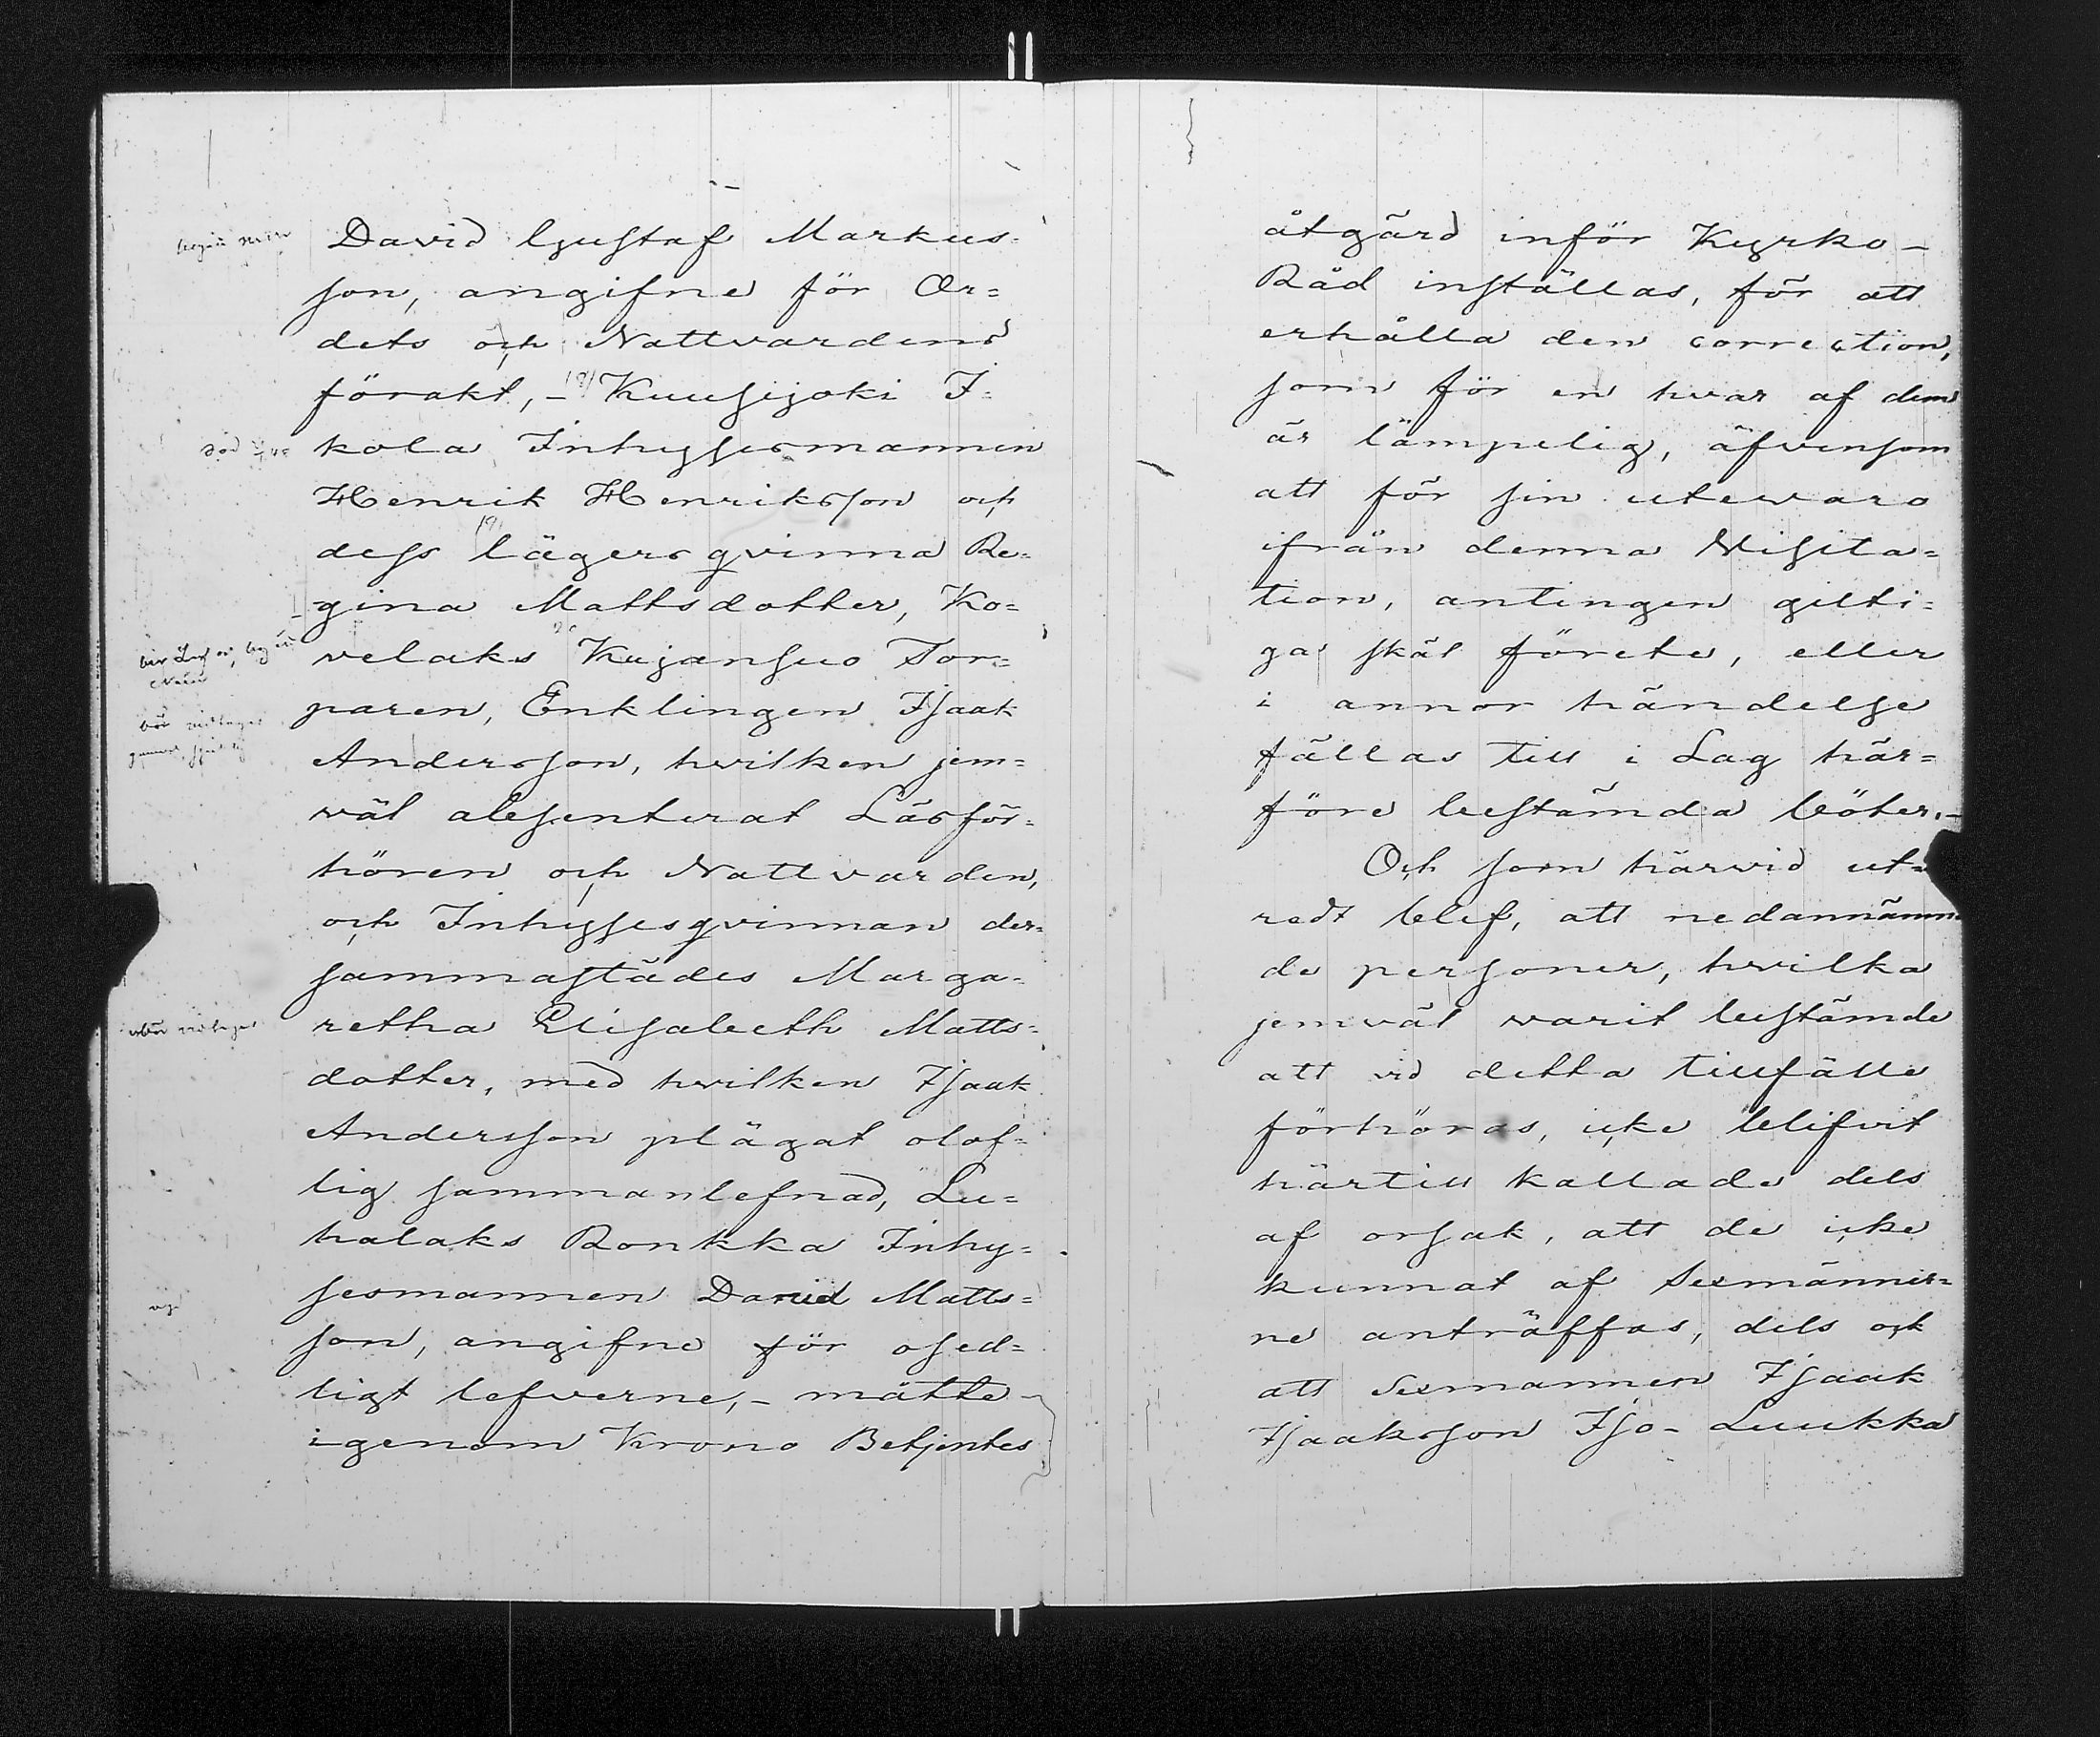 David Gustaf Markus=
son, angifne för Or=
dets och Nattvardens
förakt, – Kuusijoki I=
kola Inhysesmannen
Henrik Henriksson och
dess lägersqvinna Re=
gina Mattsdotter, Ko=
velaks Kujansuo Tor=
paren, Enklingen Isaak
Andersson, hvilken jem=
wäl absenterat Läsför=
hören och Nattvarden,
och Inhysesqvinnan der=
sammastädes Marga=
retha Elisabeth Matts=
dotter, med hvilken Isaak
Andersson plägat olof=
lig sammanlefnad, Lu=
halaks Ronkka Inhy=
sesmannen David Matts=
son, angifne för osed=
ligt lefverne, – måtte
igenom Krono Betjentes
död
åtgärd inför Kyrko-
Råd inställas, för att
erhålla den correction,
som för en hvar af dem
är lämpelig, äfvensom
att för sin utewaro
ifrån denna Visita=
tion, antingen gilti=
ga skäl förete, eller
i annor händelse
fällas till i Lag här=
före bestämda böter. –
Och som härvid ut=
redt blef, att nedannämn=
de personer, hvilka
jemväl warit bestämde
att vid detta tillfälle
förhöras, icke blifvit
härtill kallade dels
af orsak, att de icke
kunnat af Sexmänner=
ne anträffas, dels ock
att Sexmannen Isaak
Isaaksson Iso-Luukka